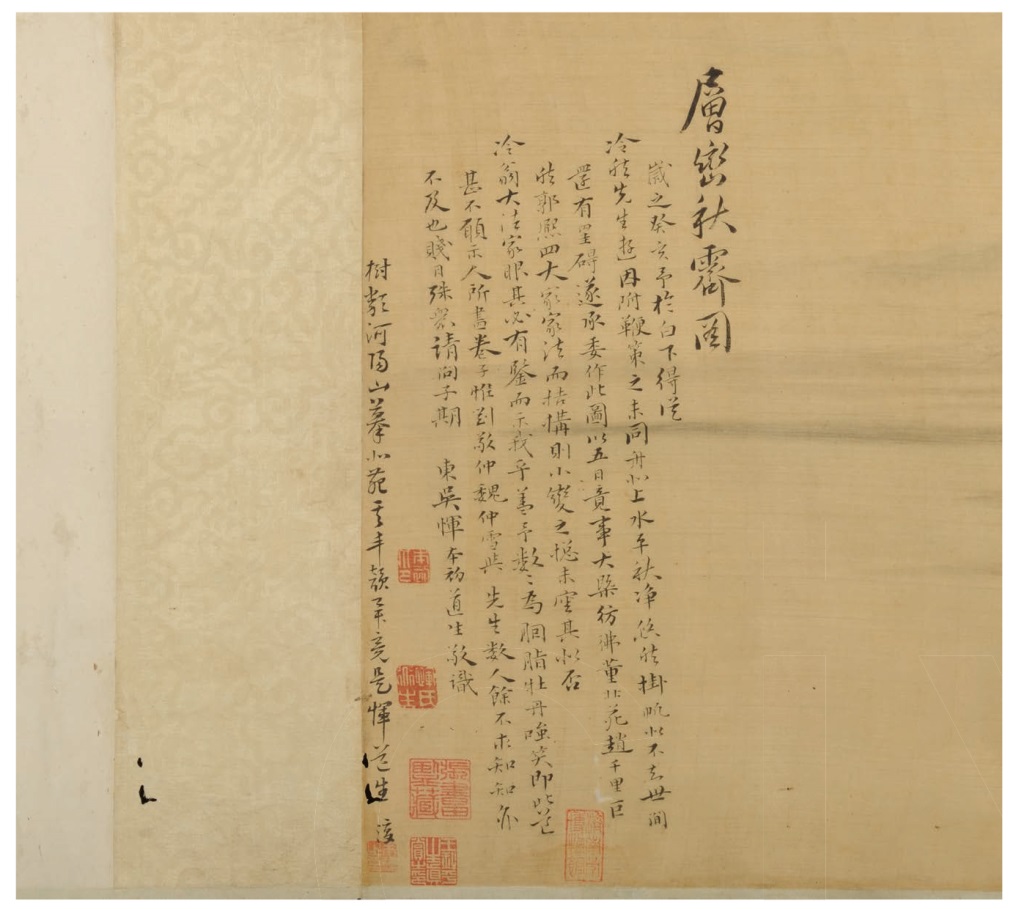 層巒秋霽圖
歲之癸亥予於白下得從
冷然先生遊因附鞭策之末同舟北上水平秋净悠然掛帆似不去世間
還有罣碍遂承委作此圖以五日竟事大槩彷彿董北苑趙千里巨
然郭熙四大家家法而結搆則小變之摠未窺其似否
冷翁大法家眼其必有鑒而示我乎蓋予數數為胭脂牡丹嗤笑即此道
甚不願示人所畫卷子惟劉敬仲魏仲雪與先生數人餘不求知知亦
不及也賤目殊衆請向子期 東吳惲本初道生敬識
樹類河陽山摹北苑 半嶺 竟是惲道生